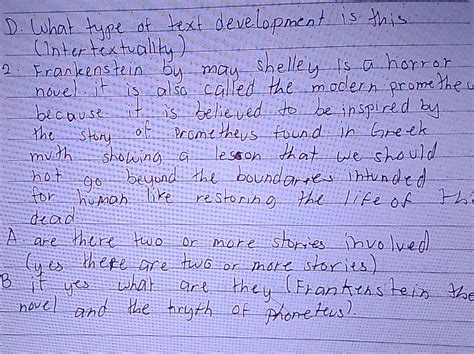 D. What type of text development is this
(Intertextuality)
2. Frankenstein by may shelley is a horror
novel it is also called the modern promethe
because it is believed to be inspired by
the story of Prometheus found in Greek
myth showing a lesson that we should
not go beyond the boundaries intunded
for human like restoring the life of the
dead
A. are there two or more stories involved
(yes there are two or more stories)
B if yes what are they (Frankenstein the
novel and the myth of Phoneteus).